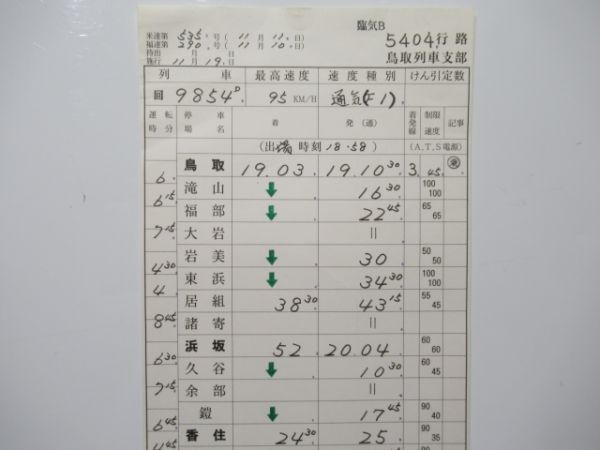 臨気B
米達第 535 号 ( 11 月 11 日)
福達第 290 号 ( 11 月 10 日)
5404 行路
待出 月 日
施行 11 月 19 日
鳥取列車支部
列 車 最高速度 速度種別 けん引定数
回 9854D 95 KM/H 通気(F1)
運転時分 停車場名 着 発(通) 着発線 制限速度 記事
(出場時刻 18.58) (A.T.S電源)
鳥取 19.03 19.10 30 3 45
6
滝山 ↓ 16 30 100 100
6 15
福部 ↓ 22 45 65 65
7 15
大岩 〃
岩美 ↓ 30 50 50
4 30
東浜 ↓ 34 30 100 100
4
居組 38 30 43 15 55 45
8 45
諸寄 〃
浜坂 52 20.04 60 60
6 30
久谷 ↓ 10 30 60 45
7 15
余部 〃
鎧 ↓ 17 45 90 40
6 45
香住 24 30 25 90 35